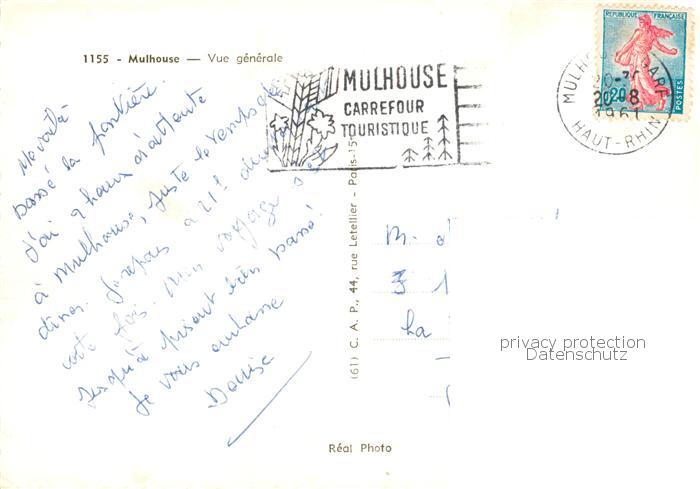 1155 - Mulhouse — Vue générale
Me voilà
passé la frontière.
J'ai 2 heures d'attente
à Mulhouse, juste le temps de
diner. Je repars à 21h
cette fois. Mon voyage
jusqu'à présent très bien passé!
Je vous embrasse
Denise
MULHOUSE
CARREFOUR
TOURISTIQUE
REPUBLIQUE FRANÇAISE
0,20
POSTES
MULHOUSE GARE
20-8
1961
HAUT-RHIN
(61) C. A. P., 44, rue Letellier - Paris-15e
M.
La
privacy protection
Datenschutz
Réal Photo